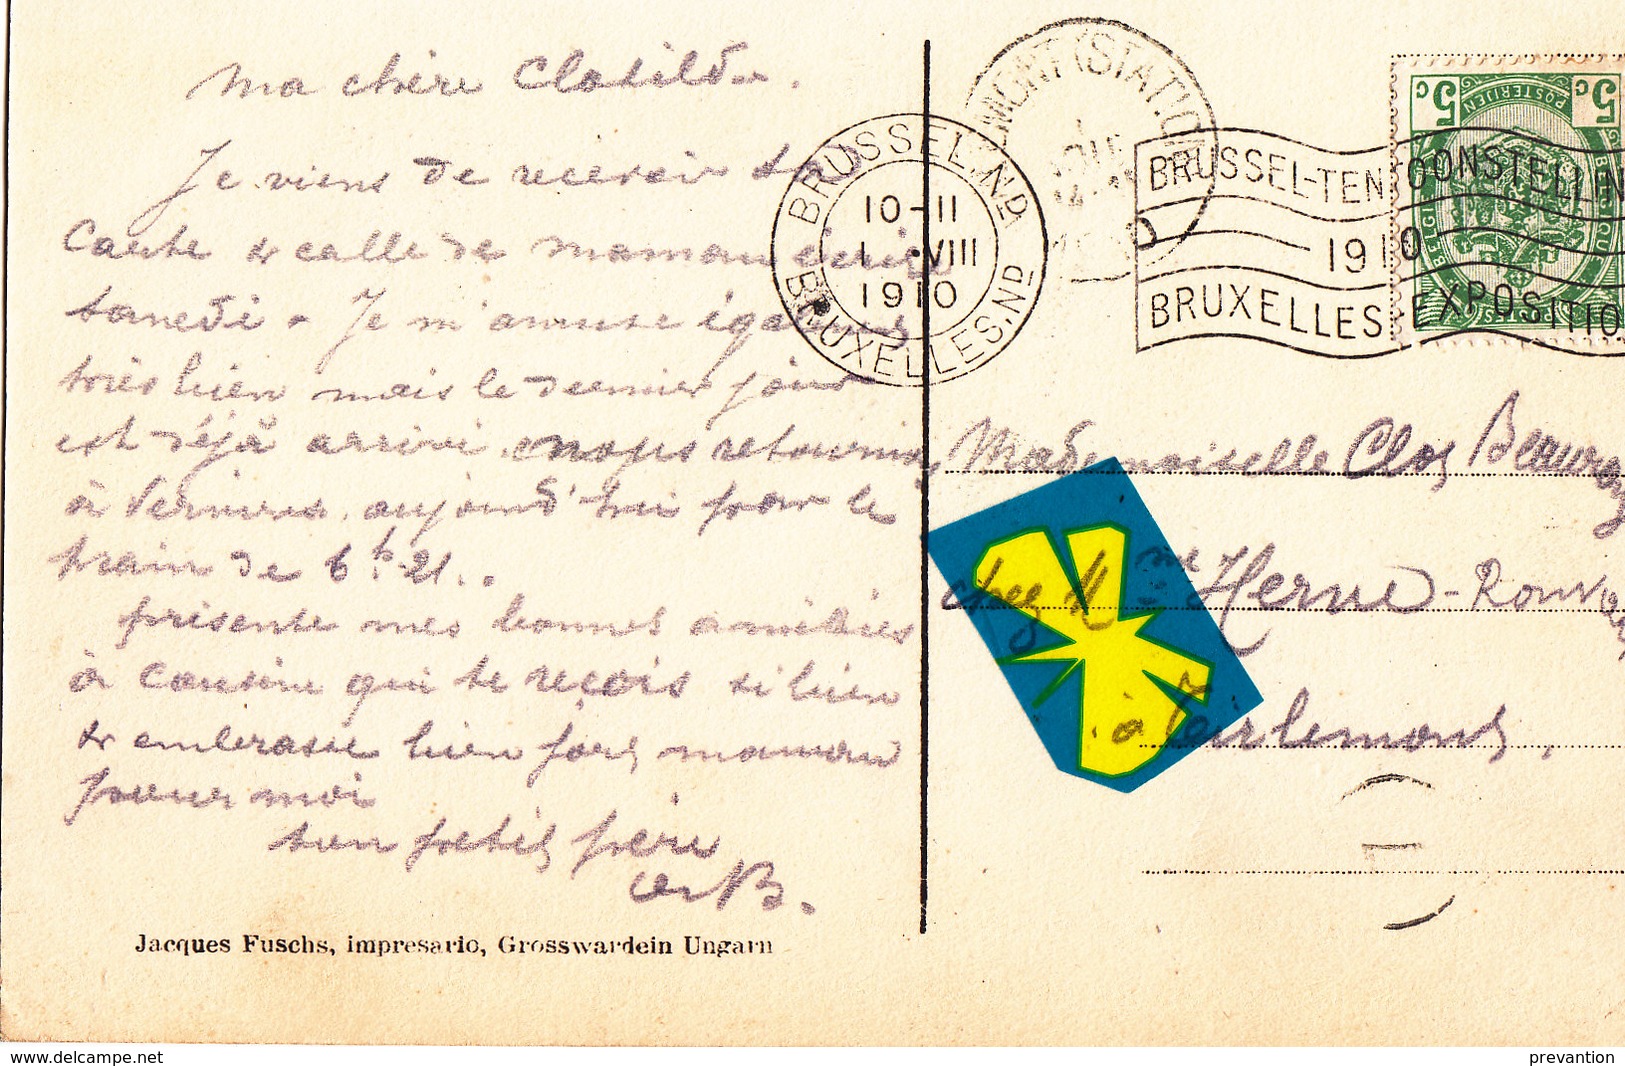 Ma chère Clotilde.
Je viens de recevoir ta
carte & celle de maman écrite
samedi. Je m'amuse égalemt
très bien mais le dernier jour
est déjà arrivé. nous retournons
à Verviers aujourd'hui par le
train de 6 h 21..
présente mes bonnes amitiés
à cousine qui te reçois si bien
& embrasse bien fort maman
pour moi
ton petit père
B.
Jacques Fuschs, impresario, Grosswardein Ungarn
BRUSSEL.ND
10-11
1 •VIII
1910
BRUXELLES.ND
MONT (STATIO
BRUSSEL-TEN TOONSTELLIN
1910
BRUXELLES-EXPOSITIO
5c 5c
POSTERIJEN
BELGIE
Mademoiselle Clos
chez Mme Herne-
à Tirlemont.
www.delcampe.net
prevantion